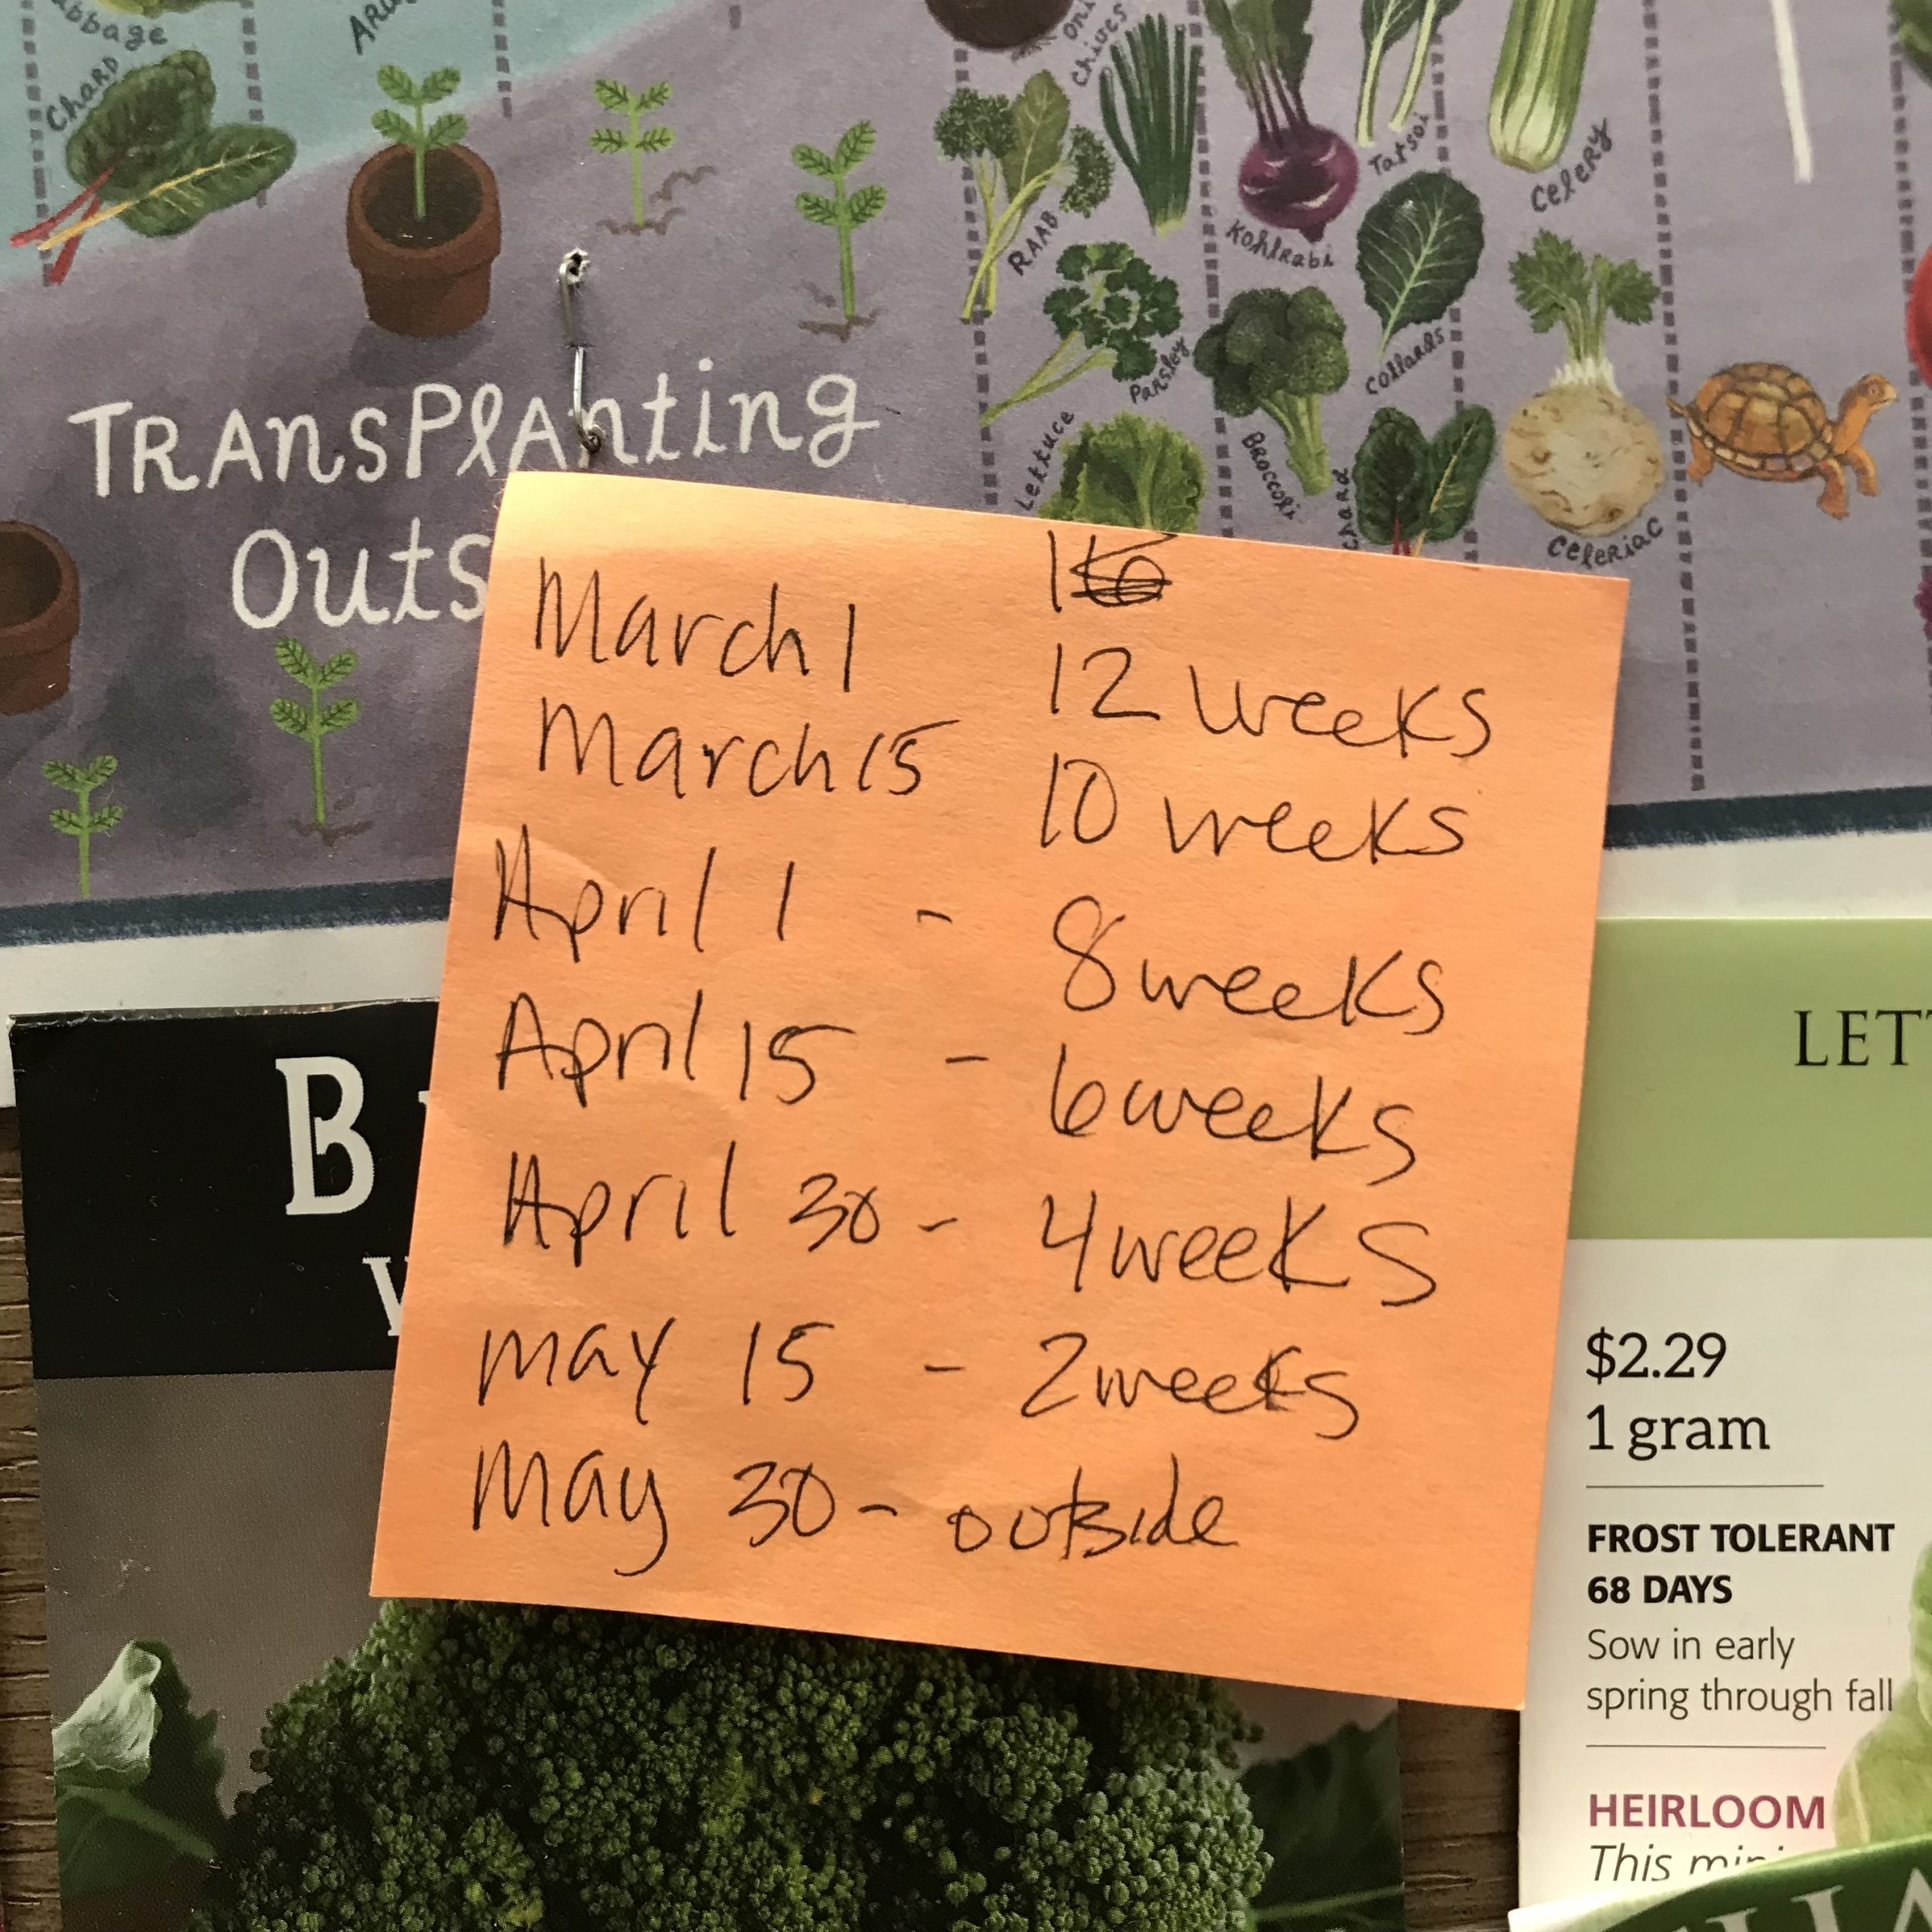 Chard
Chives
RAAB
Kohlrabi
Tatsoi
Celery
Parsley
Collards
Lettuce
Broccoli
Chard
Celeriac
TRANSPlAnting
Outs
March 1 12 weeks
March 15 10 weeks
April 1 - 8 weeks
April 15 - 6 weeks
April 30 - 4 weeks
May 15 - 2 weeks
May 30 - outside
B
LET
$2.29
1 gram
FROST TOLERANT
68 DAYS
Sow in early
spring through fall
HEIRLOOM
This mini